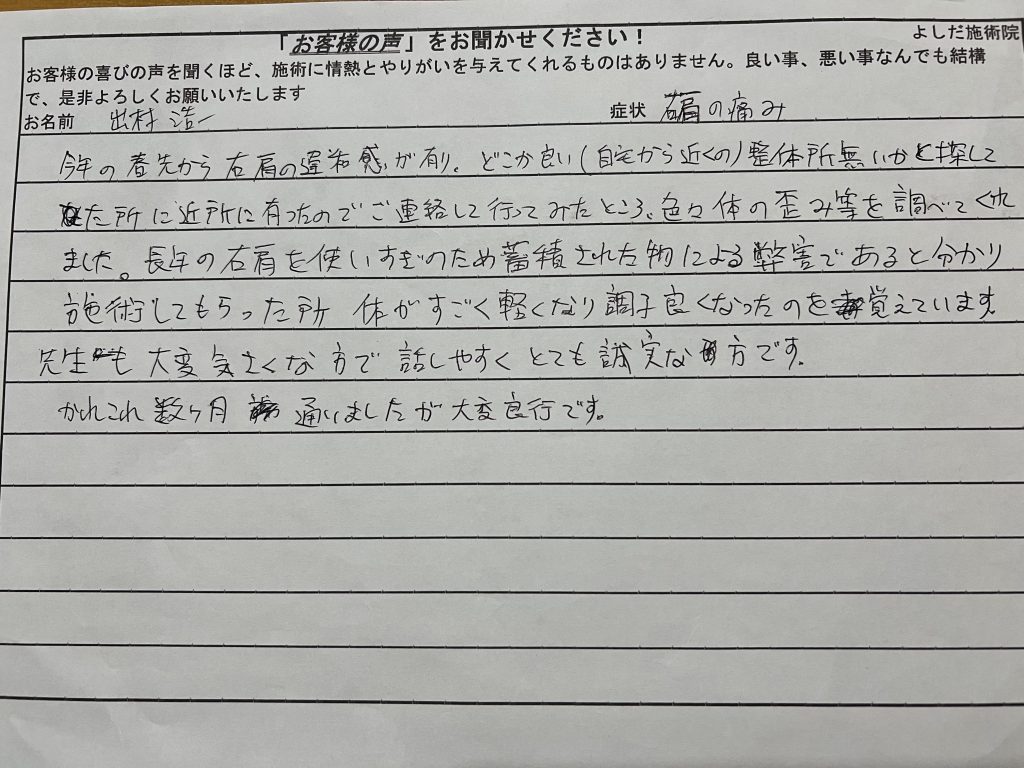 「お客様の声」をお聞かせください！ よしだ施術院
お客様の喜びの声を聞くほど、施術に情熱とやりがいを与えてくれるものはありません。良い事、悪い事なんでも結構
で、是非よろしくお願いいたします
お名前 出村 浩一 症状 右肩の痛み
今年の春先から右肩の違和感が有り、どこか良い(自宅から近くの)整体所無いかと探して
た所に近所に有ったのでご連絡して行ってみたところ、色々体の歪み等を調べてくれ
ました。長年の右肩を使いすぎのため蓄積された物による弊害であると分かり
施術してもらった所 体がすごく軽くなり調子良くなったのを覚えています。
先生も大変気さくな方で話しやすくとても誠実な方です。
かれこれ数ヶ月 通いましたが大変良行です。